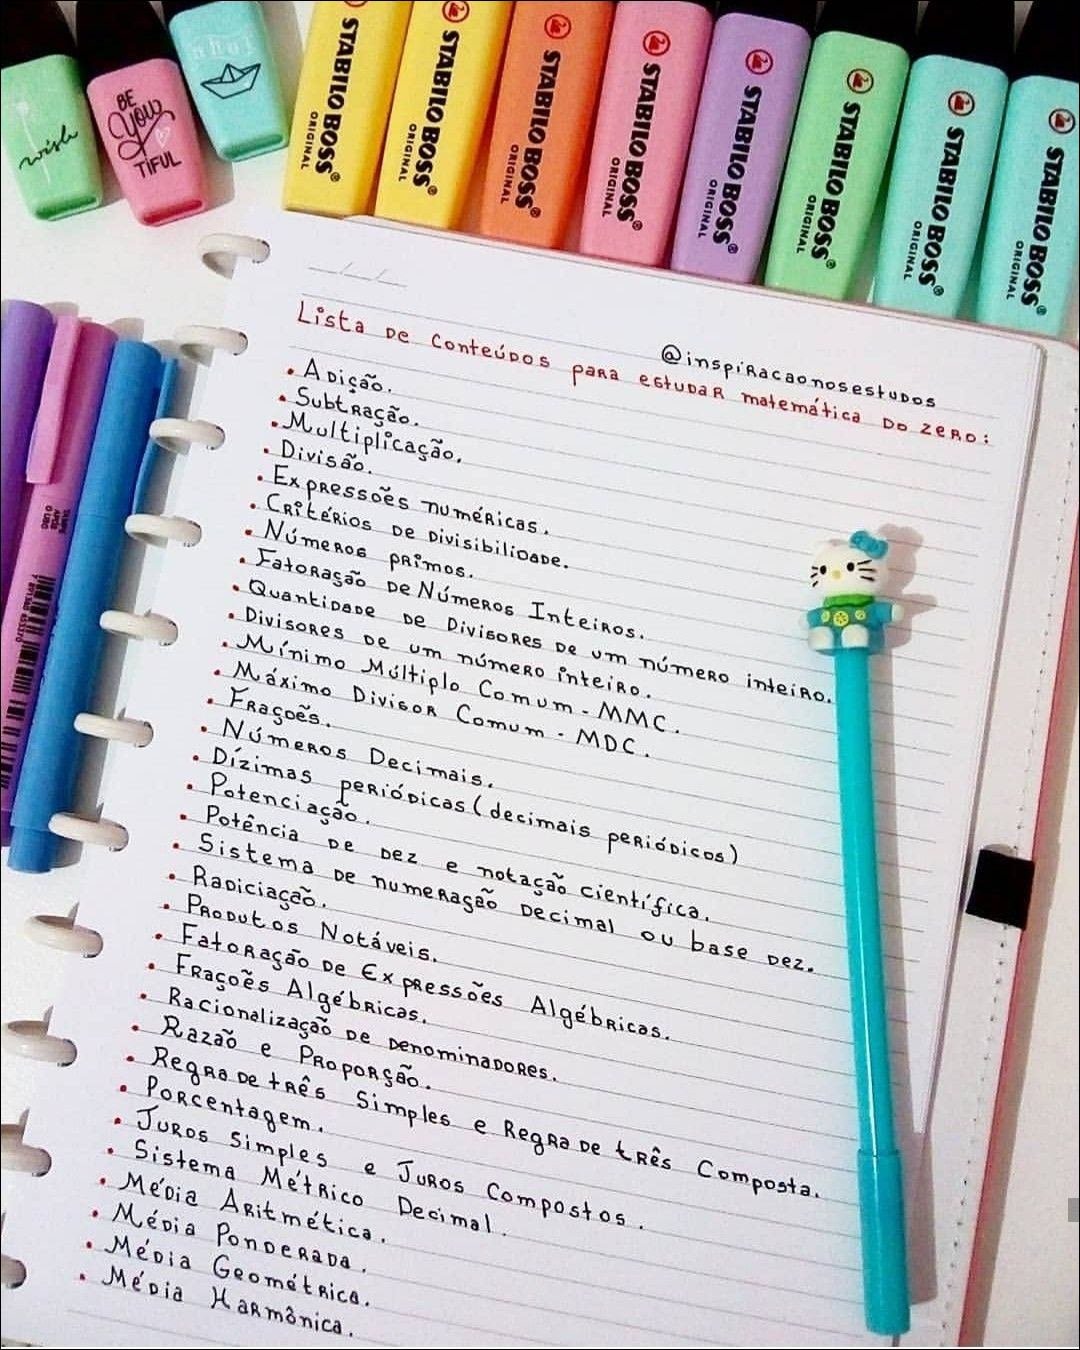 ahoi
BE
YOU
TIFUL
wish
STABILO BOSS®
ORIGINAL
STABILO BOSS®
ORIGINAL
STABILO BOSS®
ORIGINAL
STABILO BOSS®
ORIGINAL
STABILO BOSS®
ORIGINAL
STABILO BOSS®
ORIGINAL
STABILO BOSS®
ORIGINAL
STABILO BOSS®
ORIGINAL
__/__/__
@inspiracaonosestudos
Lista de conteúdos para estudar matemática do zero:
• Adição.
• Subtração.
• Multiplicação.
• Divisão.
• Expressões numéricas.
• Critérios de divisibilidade.
• Números primos.
• Fatoração de Números Inteiros.
• Quantidade de Divisores de um número inteiro.
• Divisores de um número inteiro.
• Mínimo Múltiplo Comum - MMC.
• Máximo Divisor Comum - MDC.
• Frações.
• Números Decimais.
• Dízimas periódicas (decimais periódicos)
• Potenciação.
• Potência de dez e notação científica.
• Sistema de numeração decimal ou base dez.
• Radiciação.
• Produtos Notáveis.
• Fatoração de Expressões Algébricas.
• Frações Algébricas.
• Racionalização de denominadores.
• Razão e Proporção.
• Regra de três Simples e Regra de três Composta.
• Porcentagem.
• Juros Simples e Juros Compostos.
• Sistema Métrico Decimal.
• Média Aritmética.
• Média Ponderada.
• Média Geométrica.
• Média Harmônica.